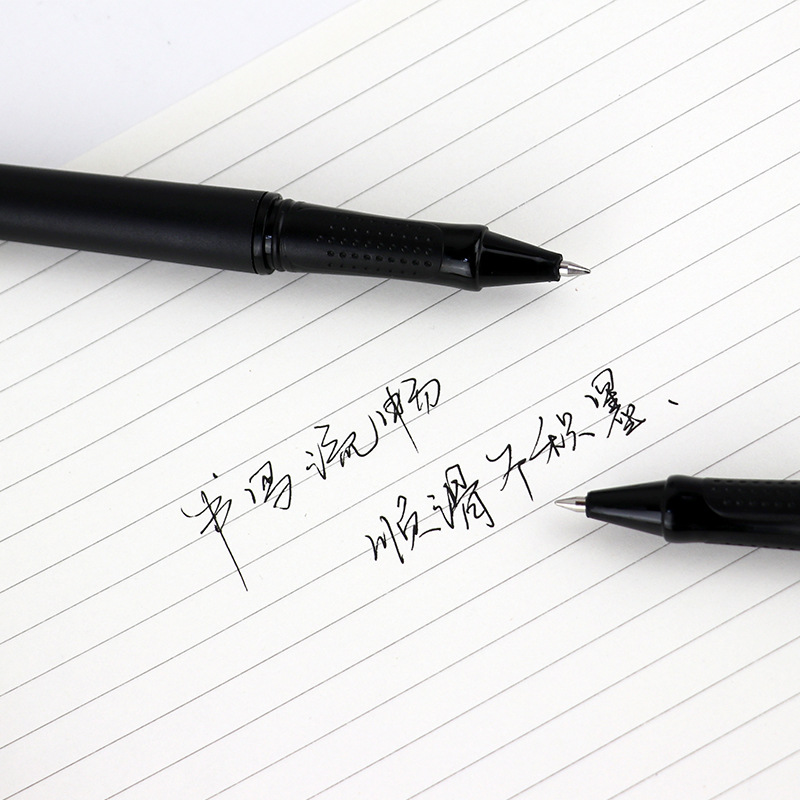 书写流畅
顺滑不积墨.